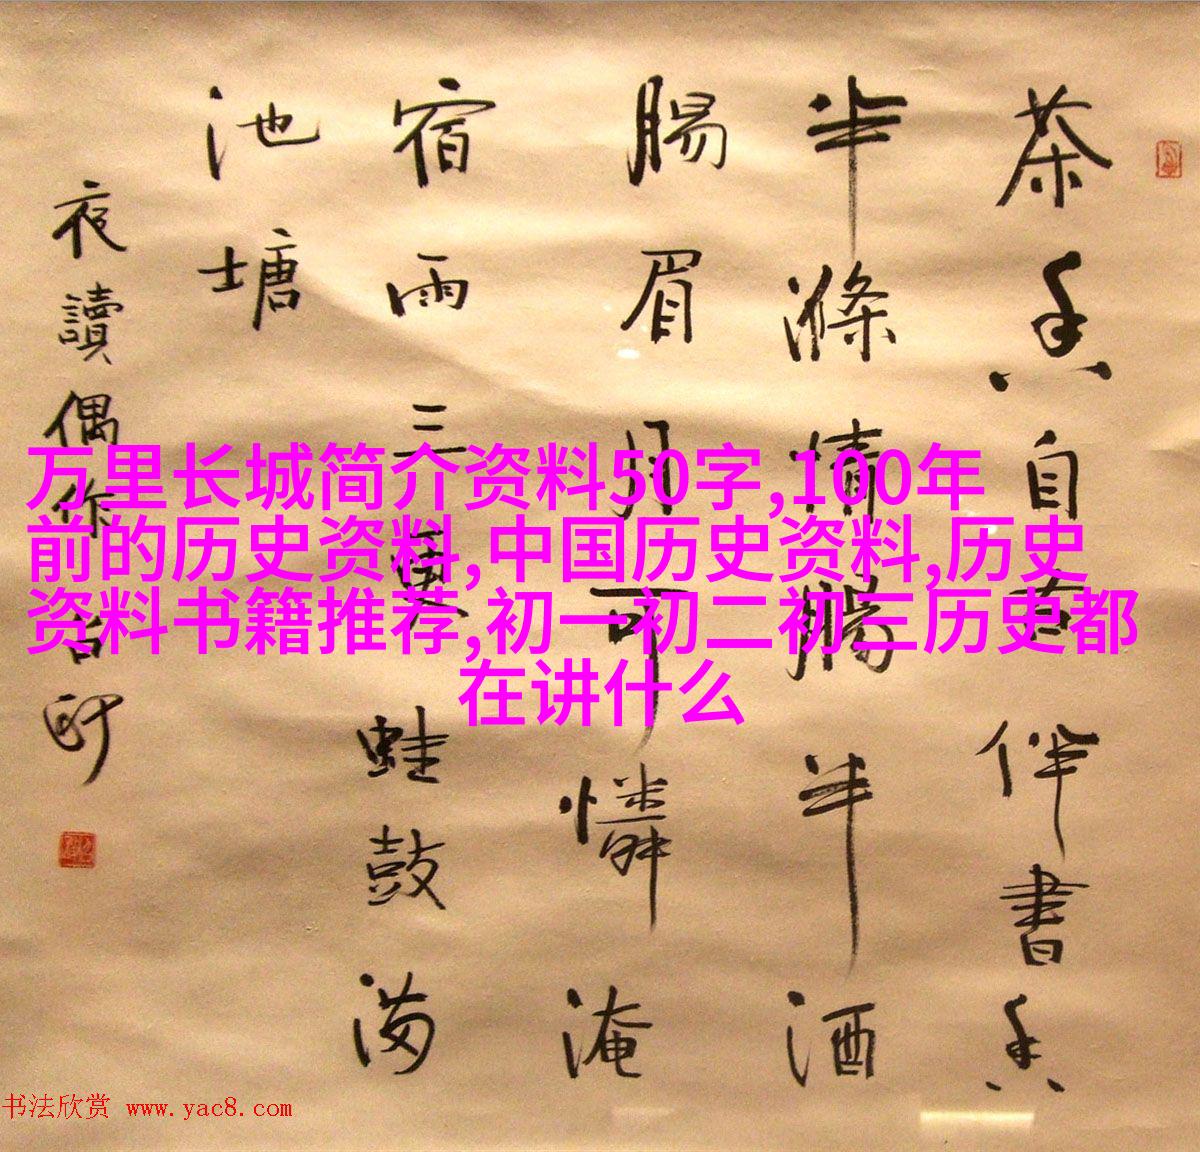 茶香自古伴書香
半滌情腸半酒
腸眉月可憐淹
宿雨三更蛙鼓满
池塘
夜讀偶作
万里长城简介资料50字,100年
前的历史资料,中国历史资料,历史
资料书籍推荐,初一初二初三历史都
在讲什么
书法欣赏 www.yac8.com